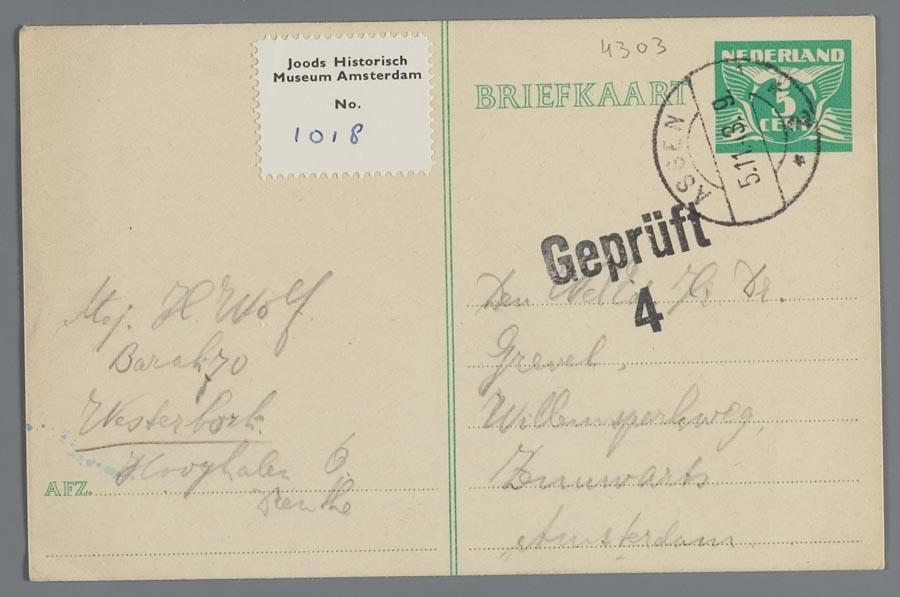 Joods Historisch
Museum Amsterdam
No.
1018
4303
NEDERLAND
5
CENT
BRIEFKAART
ASSEN
5.11.43.9
Geprüft
4
Mej. H Wolf.
Barak 70
Westerbork.
Hooghalen
Drenthe
AFZ.
Den Hr. Dr.
Grevel,
Willemsparkweg,
Amsterdam